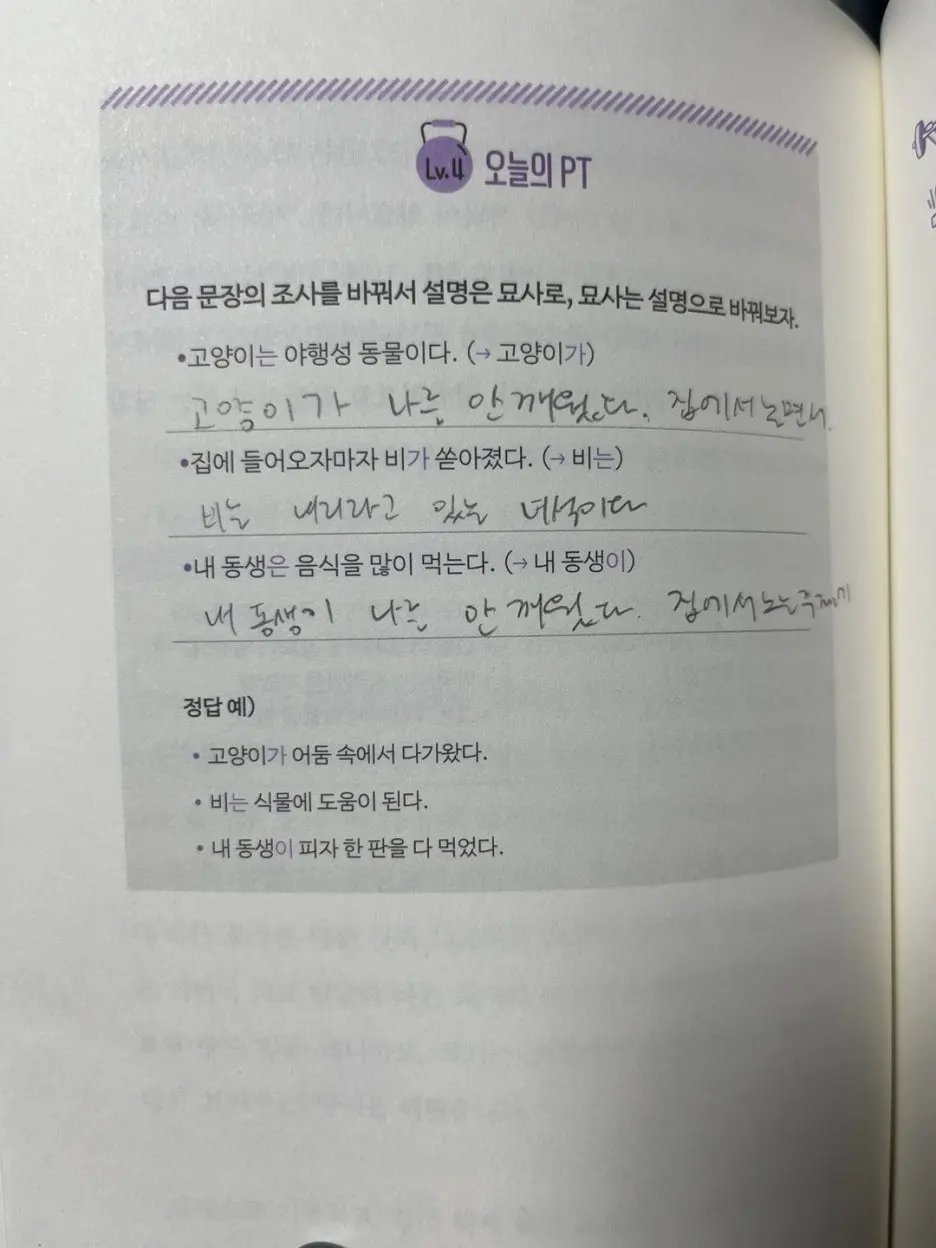 Lv.4 오늘의 PT
다음 문장의 조사를 바꿔서 설명은 묘사로, 묘사는 설명으로 바꿔보자.
•고양이는 야행성 동물이다. (→ 고양이가)
고양이가 나를 안 깨웠다. 집에서 놀면서.
•집에 들어오자마자 비가 쏟아졌다. (→ 비는)
비는 내리라고 있는 녀석이다
•내 동생은 음식을 많이 먹는다. (→ 내 동생이)
내 동생이 나를 안 깨웠다. 집에서 노는 주제에
정답 예)
• 고양이가 어둠 속에서 다가왔다.
• 비는 식물에 도움이 된다.
• 내 동생이 피자 한 판을 다 먹었다.